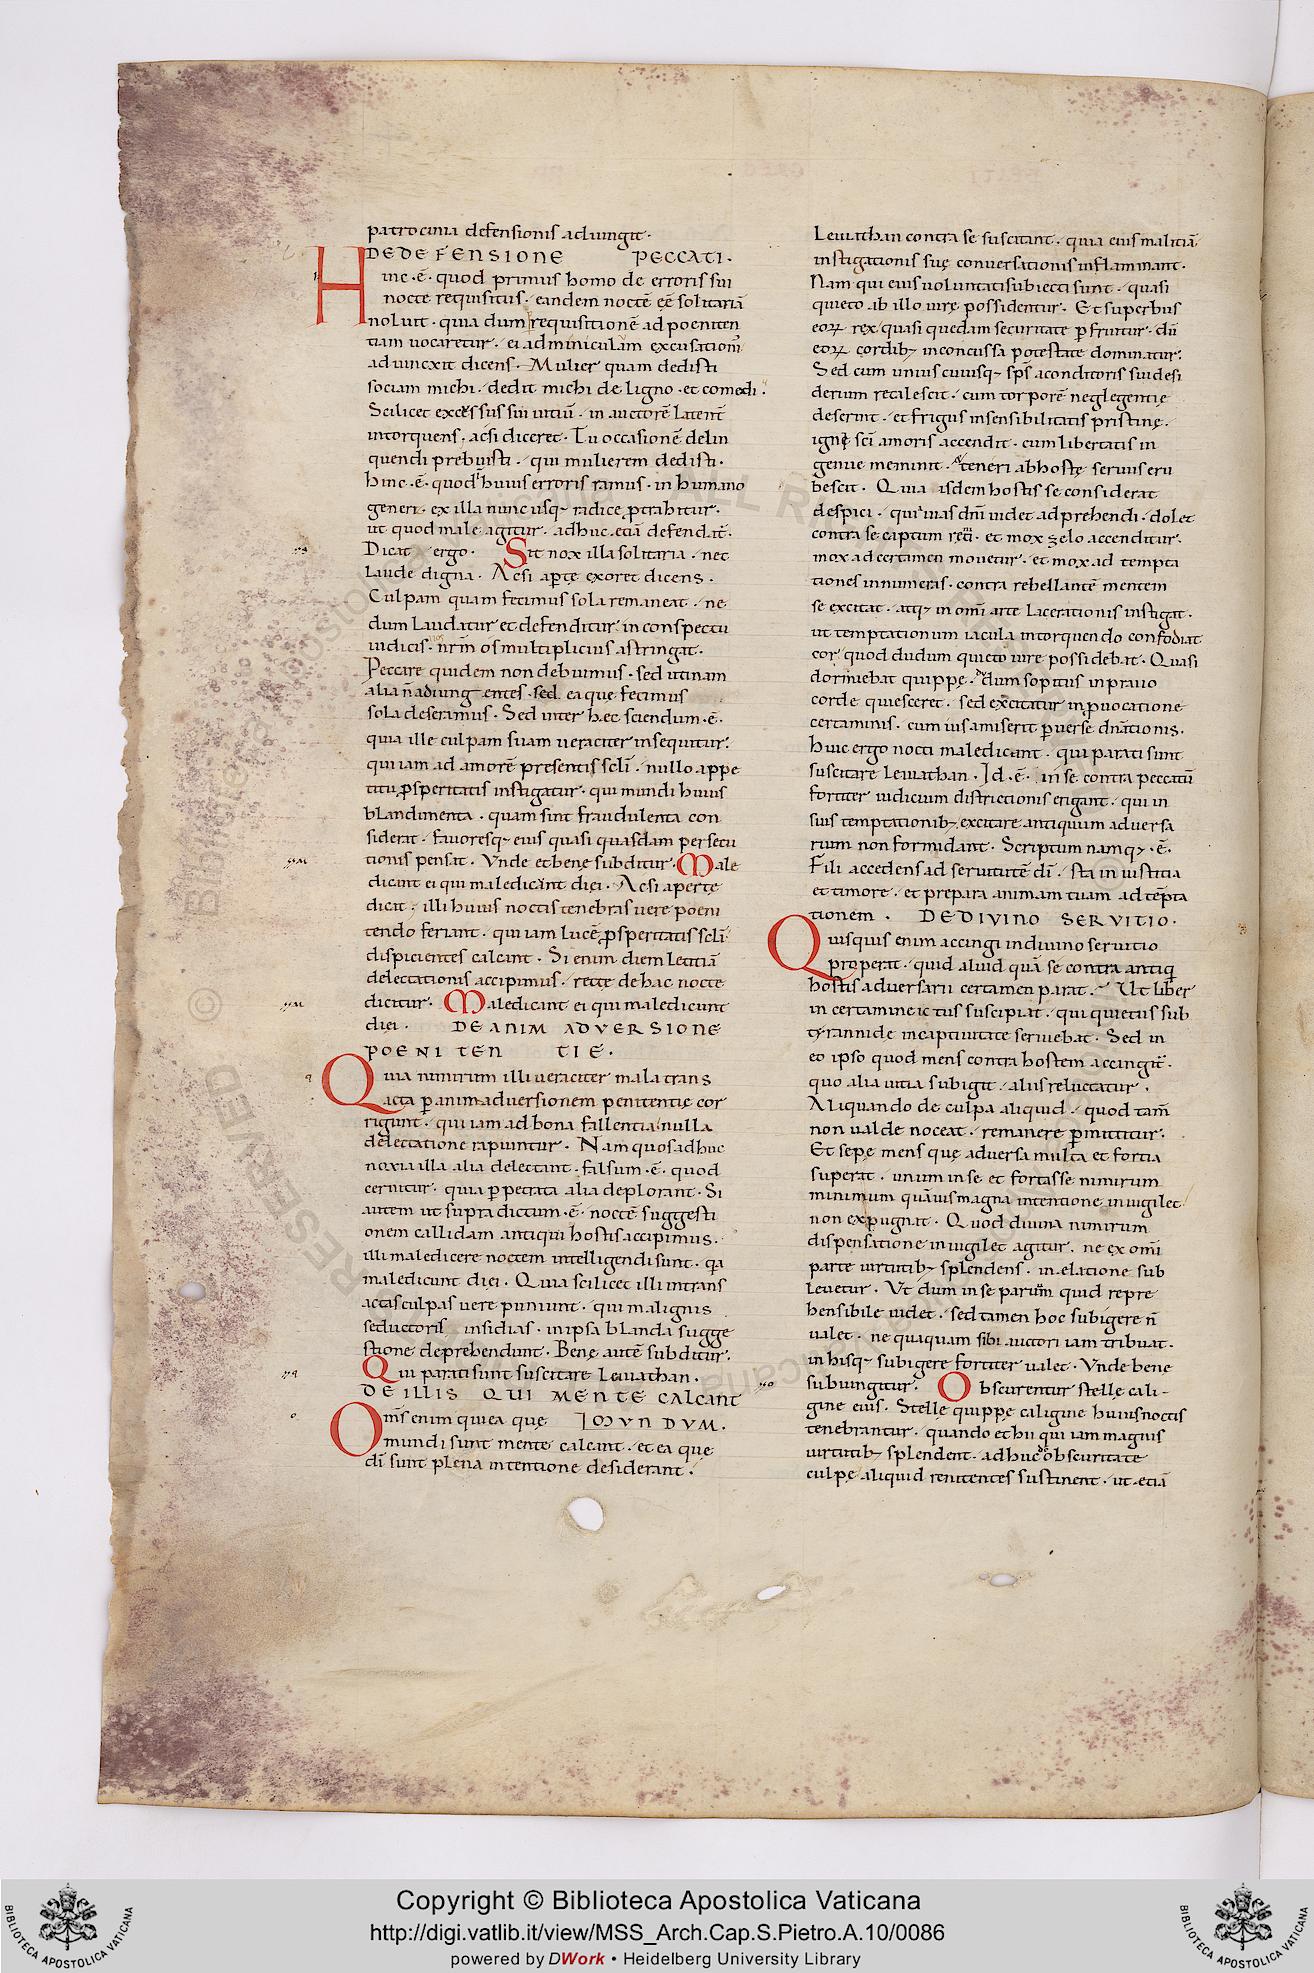 patrocinia defensionis adiungit.
DE DEFENSIONE PECCATI.
Hinc .ē. quod primus homo de erroris sui
nocte requisitus. eandem noctē eē solitariā
noluit. quia dum requisitionē ad poeniten
tiam uocaretur. ei adminiculum excusationis
adiuncxit dicens. Mulier quam dedisti
sociam michi. dedit michi de ligno. et comedi.
Scilicet excessus sui uitiū. in auctorē latent
intorquens. acsi diceret. Tu occasionē delin
quendi prebuisti. qui mulierem dedisti.
hinc .ē. quod huius erroris ramus. in humano
genere ex illa nunc usq; radice ptrahitur.
ut quod male agitur. adhuc etiā defendat̄.
Dicat ergo. Sit nox illa solitaria. nec
laude digna. Acsi apte exoret dicens.
Culpam quam fecimus sola remaneat. ne
dum laudatur et defenditur in conspectu
iudicis. nrm os multiplicius astringat.
Peccare quidem non debuimus. sed utinam
alia n̄ adiungentes. sed ea que fecimus
sola deseramus. Sed inter hec sciendum .ē.
quia ille culpam suam ueraciter insequitur.
qui iam ad amorē presentis scli. nullo appe
titu psperitatis instigatur. qui mundi huius
blandimenta. quam sint fraudulenta con
siderat. fauoresq; eius quasi quasdam persecu
tionis pensat. Vnde et bene subditur. Male
dicant ei qui maledicunt diei. Acsi aperte
dicit. illi huius noctis tenebras uere poeni
tendo feriant. qui iam lucē psperitatis scli
dispicientes calcant. Si enim diem letitiā
delectationis accipimus. recte de hac nocte
dicitur. Maledicant ei qui maledicunt
diei. DE ANIMADVERSIONE
POENITENTIE.
Quia nimirum illi ueraciter mala trans
acta p animaduersionem penitentie cor
rigunt. qui iam ad bona fallentia nulla
delectatione rapiuntur. Nam quos adhuc
noxia illa alia delectant. falsum .ē. quod
cernitur. quia ppetrata alia deplorant. Si
autem ut supra dictum .ē. noctē suggesti
onem callidam antiqui hostis accipimus.
illi maledicere noctem intelligendi sunt. qa
maledicunt diei. Quia scilicet illi intrans
actas culpas uere puniunt. qui malignis
seductoris insidias. in ipsa blanda sugge
stione deprehendunt. Bene autē subditur.
Qui parati sunt suscitare leuiathan.
DE ILLIS QUI MENTE CALCANT
Oms enim qui ea que MUNDUM.
mundi sunt mente calcant. et ea que
di sunt plena intentione desiderant.
Leuiathan contra se suscitant. quia eius malitiā
instigationis sue conuersationis inflammant.
Nam qui eius uoluntati subiecti sunt. quasi
quieto ab illo iure possidentur. Et superbus
eoꝝ rex quasi quedam securitate pfruitur. dū
eoꝝ cordib; inconcussa potestate dominatur.
Sed cum unius cuiusq; sps a conditoris sui desi
derium recalescit. cum torporē neglegentie
deserit. et frigus insensibilitatis pristine.
igne sci amoris accendit. cum libertatis in
genue meminit. teneri ab hoste seruus eru
bescit. Quia isdem hostis se considerat
despici. qui uias dm uidet adprehendi. dolet
contra se captum reti. et mox zelo accenditur.
mox ad certamen mouetur. et mox ad tempta
tiones innumeras. contra rebellantē mentem
se excitat. atq; in omi arte lacerationis instigat.
ut temptationum iacula intorquendo confodiat
cor quod dudum quieto iure possidebat. Quasi
dormiebat quippe. dum sopitus in prauo
corde quiesceret. sed excitatur in puocatione
certaminis. cum ius amiserit puerse dnationis.
Huic ergo nocti maledicant. qui parati sunt
suscitare leuiathan. Id .ē. in se contra peccatū
fortiter iudicium districtionis erigant. qui in
suis temptationib; excitare antiquum aduersa
rium non formidant. Scriptum namq; .ē.
Fili accedens ad seruitutē di. sta in iustitia
et timore. et prepara animam tuam ad tēpta
tionem. DE DIVINO SERVITIO.
Quisquis enim accingi in diuino seruitio
properat. quid aliud quā se contra antiq
hostis aduersarii certamen parat. Ut liber
in certamine ictus suscipiat. qui quietus sub
tyrannide in captiuitate seruiebat. Sed in
eo ipso quod mens contra hostem accingit̄.
quo alia uitia subigit. aliis reluctatur.
Aliquando de culpa aliquid. quod tam̄
non ualde noceat. remanere pmittitur.
Et sepe mens que aduersa multa et fortia
superat. unum in se et fortasse nimirum
minimum quāuis magna intentione inuigilet
non expugnat. Quod diuina nimirum
dispensatione inuigilet agitur. ne ex omi
parte uirtutib; splendens. in elatione sub
leuetur. Ut dum in se paruum quid repre
hensibile uidet. sed tamen hoc subigere n̄
ualet. nequaquam sibi auctori iam tribuat.
in hisq; subigere fortiter ualet. Vnde bene
subiungitur. Obscurentur stelle cali-
gine eius. Stelle quippe caligine huius noctis
tenebrantur. quando et hii qui iam magnis
uirtutib; splendent. adhuc obscuritate
culpe aliquid renitentes sustinent. ut etiā
Copyright © Biblioteca Apostolica Vaticana
http://digi.vatlib.it/view/MSS_Arch.Cap.S.Pietro.A.10/0086
powered by DWork • Heidelberg University Library